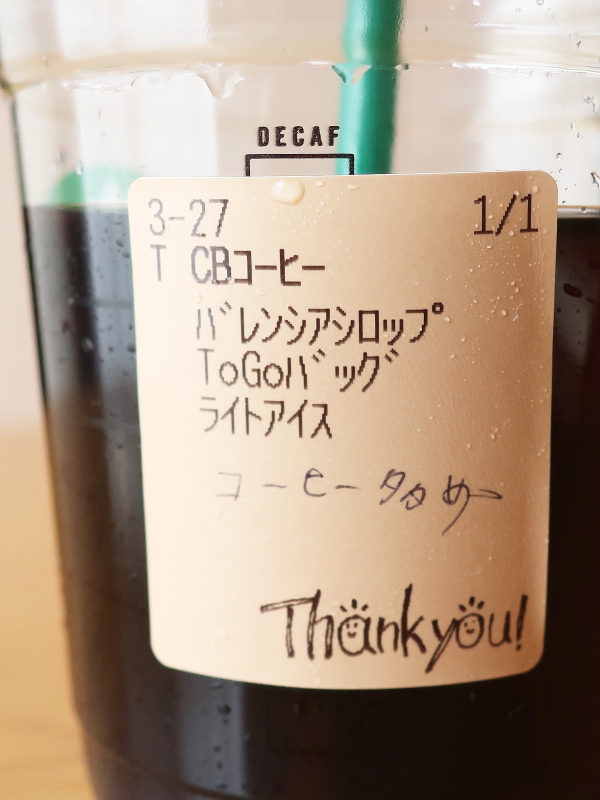 DECAF
3-27 1/1
T CBコーヒー
バレンシアシロップ
ToGoバッグ
ライトアイス
コーヒー多め
Thank you!